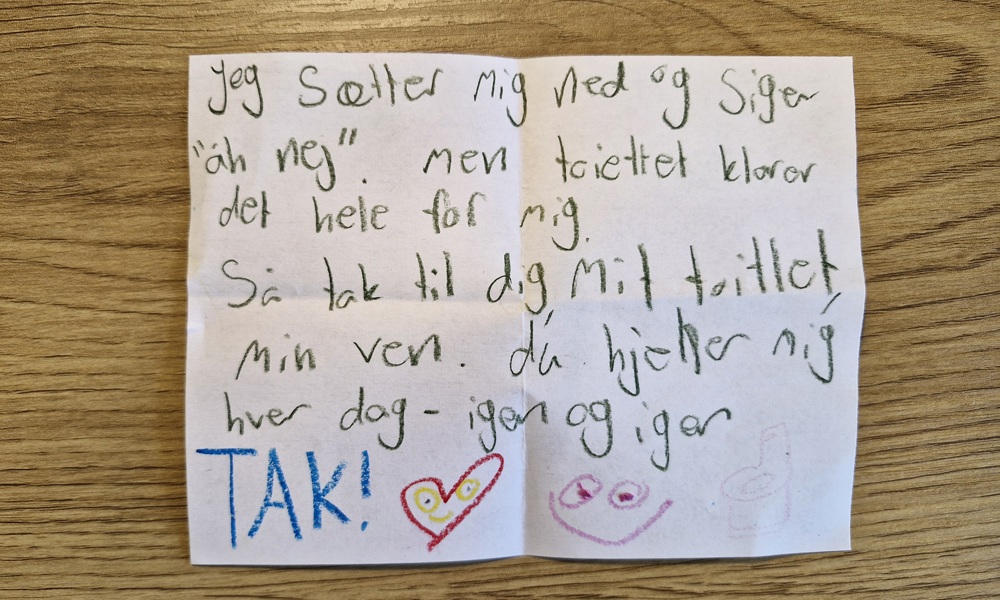 Jeg Sætter mig ned og Siger
"åh nej". men toiettet klarer
det hele for mig.
Så tak til dig mit toittet
min ven. dú hjelper mig
hver dag - igen og igen
TAK!